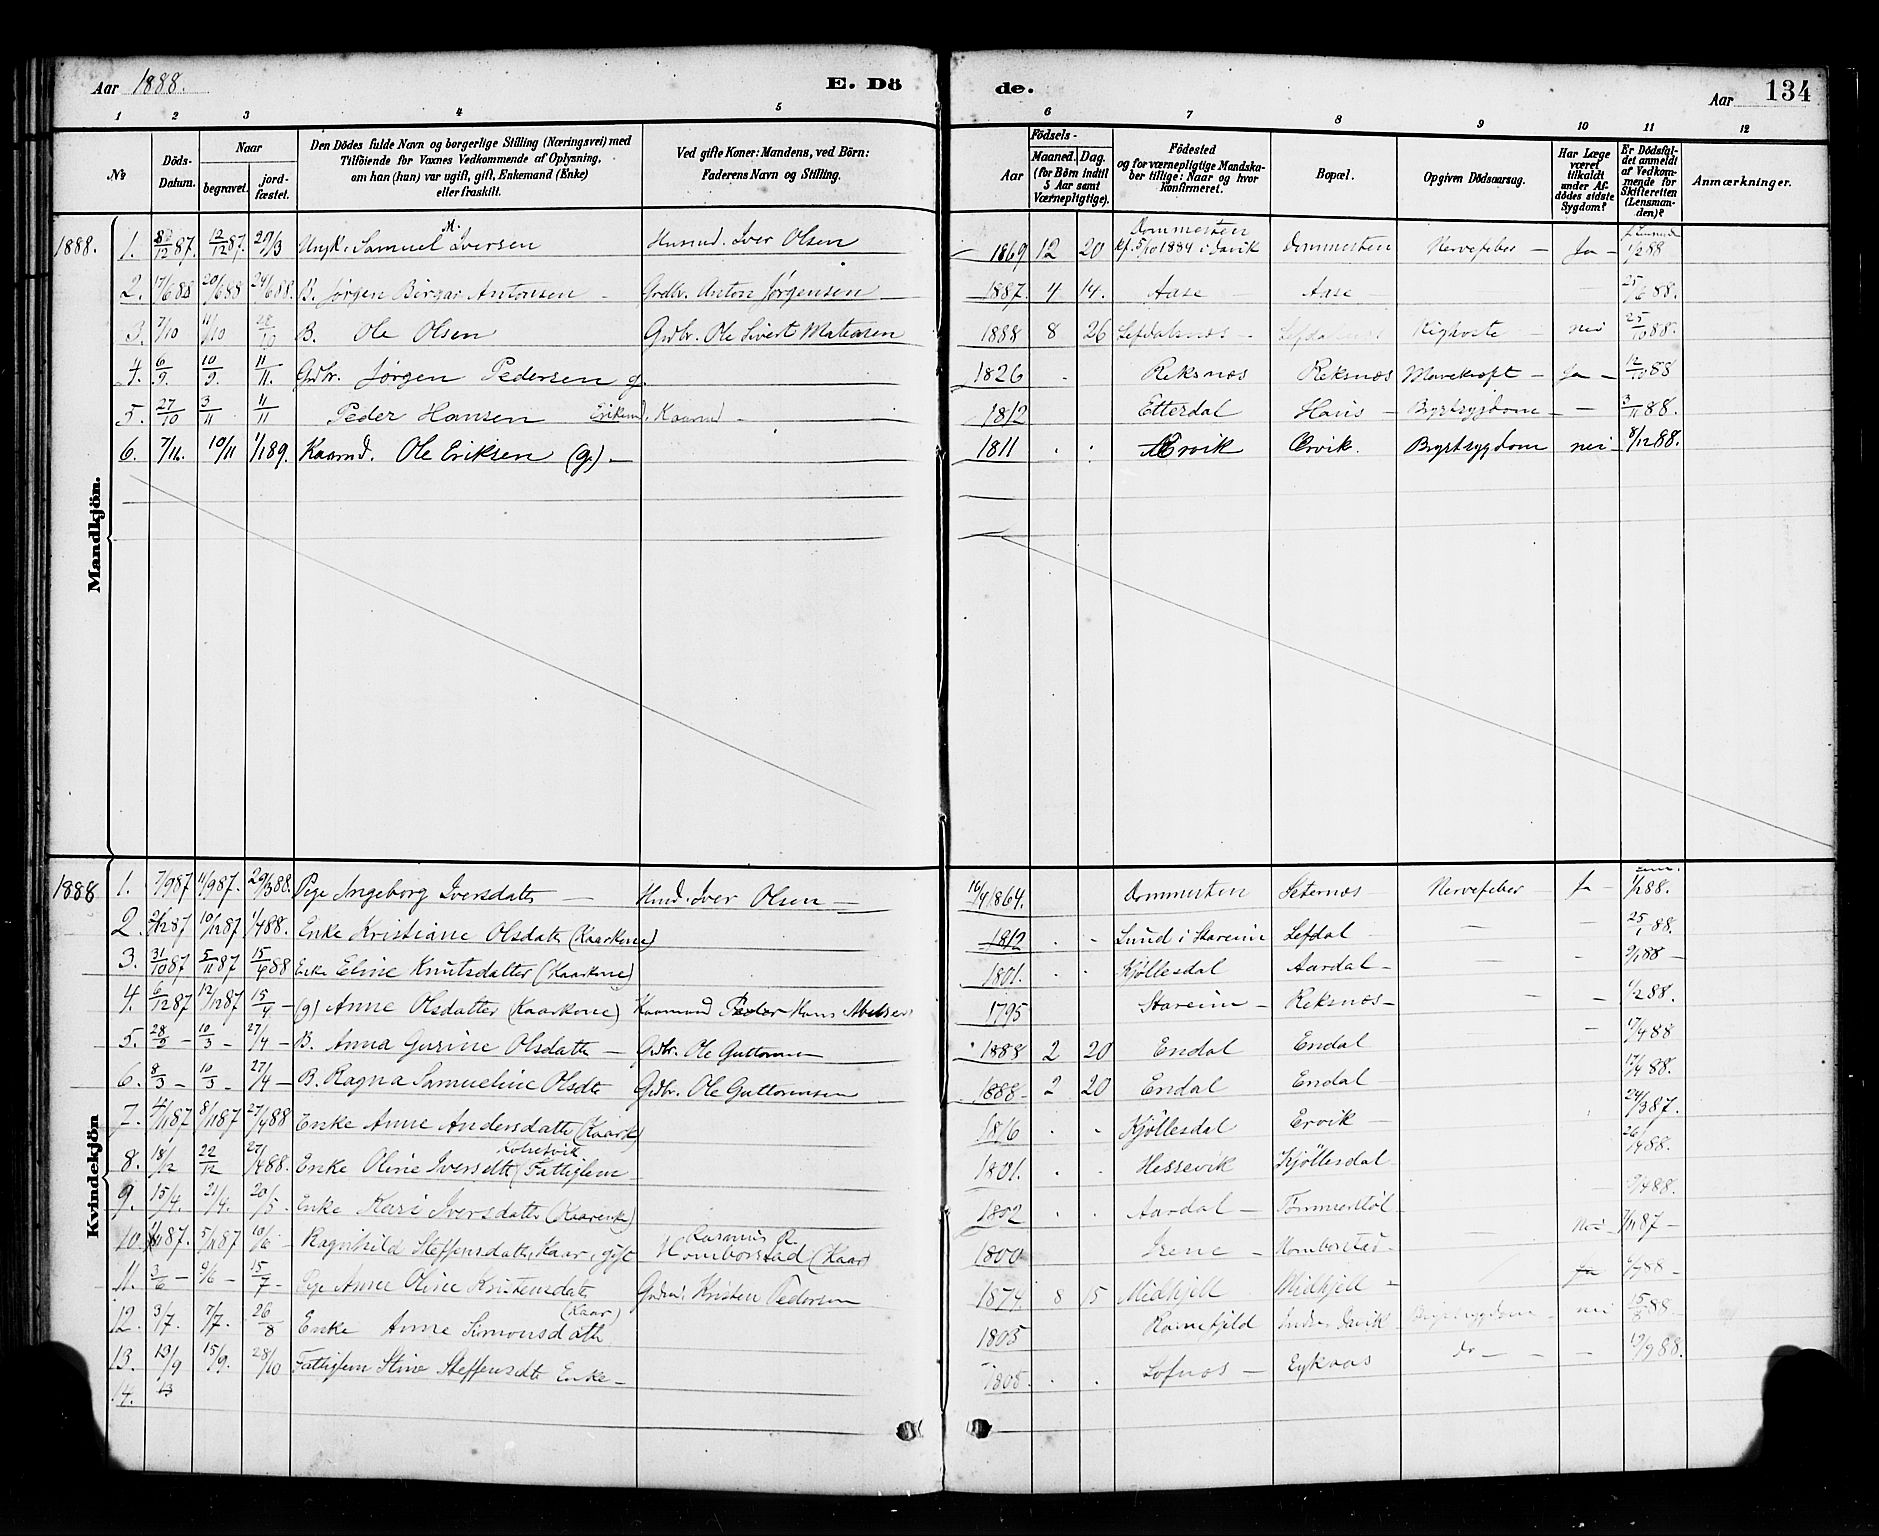 Aar 1888. E. Dö de. Aar 134
1 2 3 4 5 6 7 8 9 10 11 12
№ Döds-Datum. Naar begravet. jordfæstet. Den Dödes fulde Navn og borgerlige Stilling (Næringsvei) med Tilföiende for Voxnes Vedkommende af Oplysning, om han (hun) var ugift, gift, Enkemand (Enke) eller fraskilt. Ved gifte Koner: Mandens, ved Börn: Faderens Navn og Stilling. Födsels- Aar Maaned. Dag. (for Börn indtil 5 Aar samt Værnepligtige). Födested og for værnepligtige Mandskaber tillige: Naar og hvor konfirmeret. Bopæl. Opgiven Dödsaarsag. Har Læge været tilkaldt under Afdödes sidste Sygdom? Er Dödsfaldet anmeldt af Vedkommende for Skifteretten (Lensmanden)? Anmærkninger.
Mandkjön.
1888. 1. /12 87. 12/12 87. 29/3 Ungk. Samuel M. Iversen Husmd. Iver Olsen 1869 12 20 Dommesten kf. 5/10 1884 i Davik Dommesten Nervefeber – Ja – 1/2 88
2. 17/6 88 20/6 88 24/6 88. B. Jørgen Birger Antonsen Grdbr. Anton Jørgensen 1887. 4 14. Aase Aase – 25/6 88.
3. 7/10 11/10 28/10 B. Ole Olsen Grdbr. Ole Sivert Mateasen 1888 8 26 Lefdalsnæs – Lefdalsnæs Kighoste nei 25/10 88.
4. 6/9. 10/9. 11/11. Grdbr. Jørgen Pedersen g. 1826 Reksnæs Reksnæs Mavekræft – Ja – 12/10 88
5. 27/10 3/11 11/11 Peder Hansen Enkemd. Kaarmd – 1812 Etterdal Haus – Brystsygdom – – 3/11 88.
6. 7/11. 10/11 1/1 89. Kaarmd. Ole Eriksen (g.) – 1811 Ærvik Ærvik. Brystsygdom nei – 8/12 88.
Kvindekjön
1888 1. 7/9 87 11/9 87. 29/3 88. Pige Ingeborg Iversdatter – Husmd. Iver Olsen – 16/4 1864. Dommesten Sæternæs – Nervefeber – Ja – 1/2 88.
2. /12 87 10/12 87 1/4 88. Enke Kristiane Olsdatter (Kaarkone) 1812 Lund i Stareim Lefdal – – 25/1 88.
3. 31/10 87 5/11 87 15/4 88 Enke Eline Knutsdatter (Kaarkone) 1801. Kjöllesdal Aardal – – /1 88 –
4. 6/12 87 12/12 87 15/4 – (g) Anne Olsdatter (Kaarkone) Kaarmand Hans Abelsen 1795 Stareim – Reksnæs – – – 1/2 88.
5. 28/2 – 10/3 – 27/4 – B. Anna Gurine Olsdatter – Grdbr. Ole Guttormsen 1888 2 20 Endal Endal – 17/4 88
6. 8/3 – 10/3 – 27/4 – B. Ragna Samueline Olsdtr Grdbr. Ole Guttormsen 1888 2 20 Endal Endal 17/4 88.
7. 4/11 87 8/11 87 27/4 88 Enke Anne Andersdatter (Kaark) 1816 Kjöllesdal Ervik – 24/3 87.
8. 18/12 22/12 27/4 88. Enke Oline Iversdtr (Fattiglem – 1801. Hessevik Kjöllesdal 26/4 88.
9. 15/4. 21/4. 20/5. Enke Kari Iversdatter (Kaarenke) 1802 Aardal – – /4 88.
10. /11 87. 5/11 87 10/6 – Ragnhild Steffensdatter, Kaar, gift Rasmus R. Homborstad (Kaar) 1800 – Homborstad – nei 7/11 87 –
11. 3/6 – 9/6 – 15/7 – Pige Anne Oline Kristensdatter Grdmd. Kristen Pedersen 1874. 8 15 Midhjell Midhjell – ja /7 88 –
12. 3/7. 7/7. 26/8 Enke Anne Simonsdatter (Kaar) 1805 Ramefjeld Indre Davik Brystsygdom nei 15/8 88 –
13. 13/9 15/9. 28/10 Fattiglem Stine Steffensdtr Enke – 1808. Lofnæs – Eyknæs do – – – 17/9 88.
14. 13